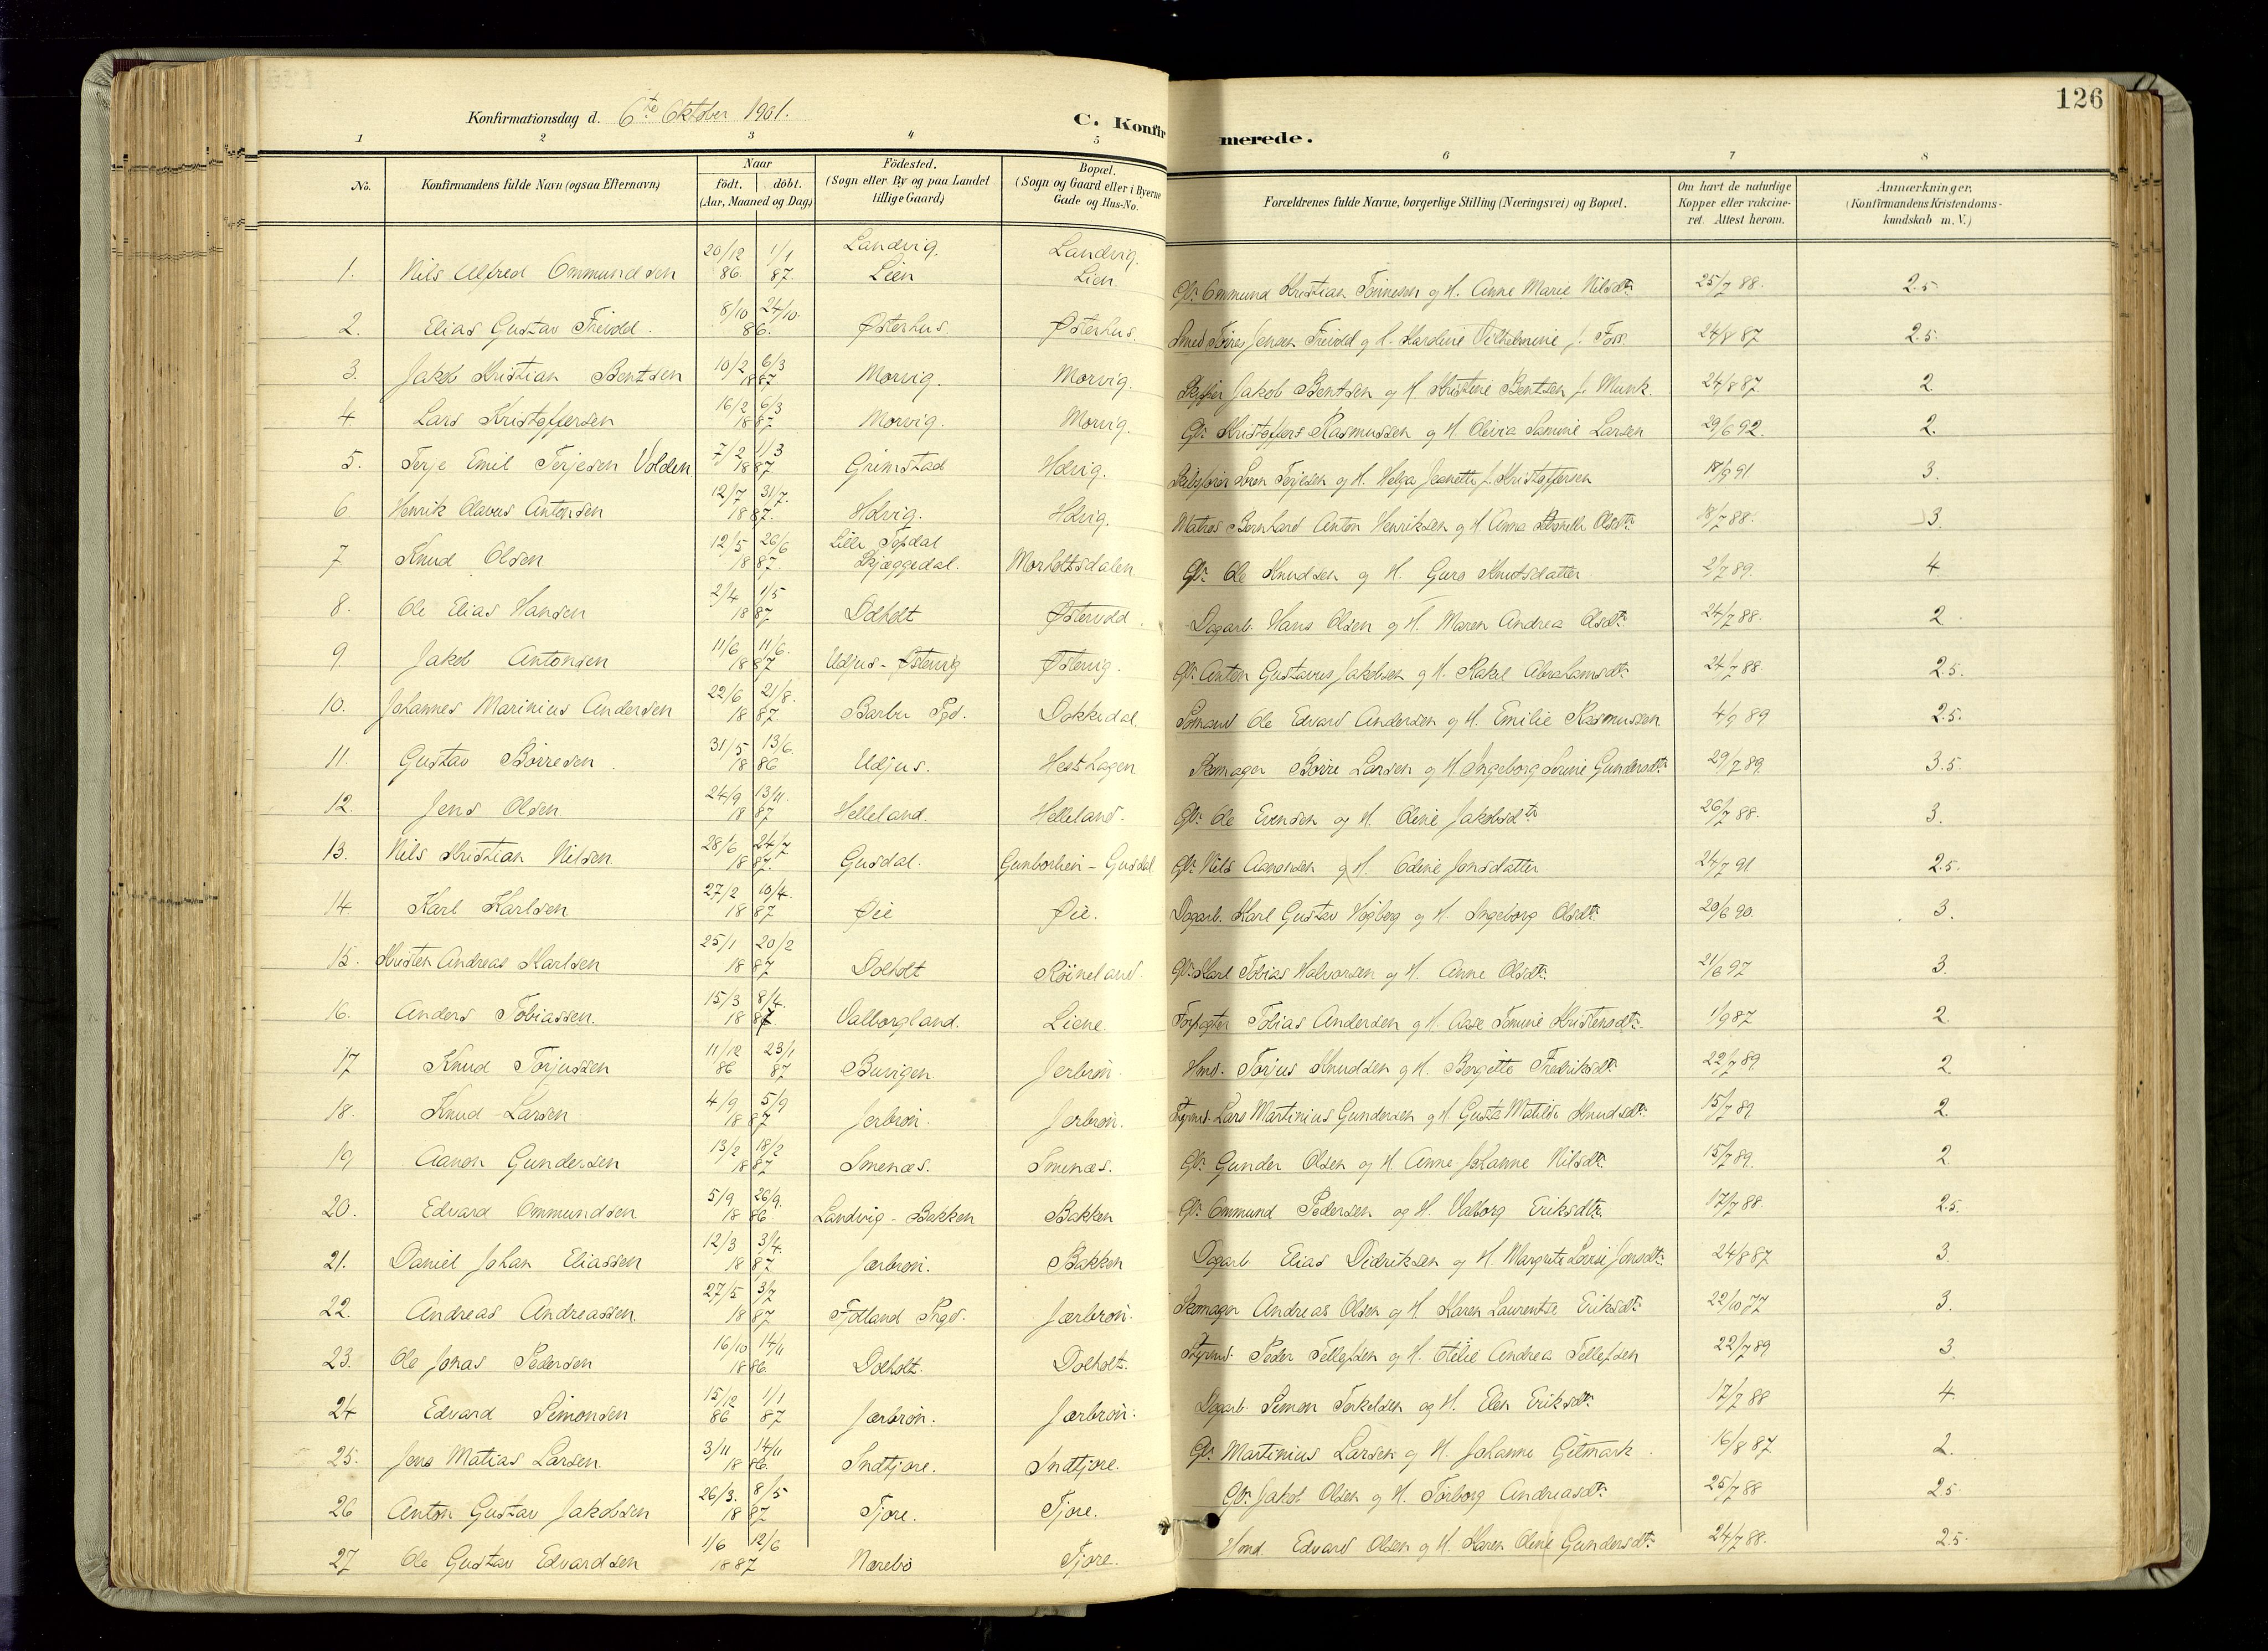 126
Konfirmationsdag d. 6te Oktober 1901.
C. Konfirmerede.
1 2 3 4 5 6 7 8
No. Konfirmandens fulde Navn (ogsaa Efternavn) Naar födt. döbt. (Aar, Maaned og Dag) Födested. (Sogn eller By og paa Landet tillige Gaard) Bopæl. (Sogn og Gaard eller i Byerne Gade og Hus-No. Forældrenes fulde Navne, borgerlige Stilling (Næringsvei) og Bopæl. Om havt de naturlige Kopper eller vakcineret. Attest herom. Anmærkninger. (Konfirmandens Kristendomskundskab m. V.)
1. Nils Alfred Ommundsen 20/12 86. 1/1 87. Landvig. Lien Landvig. Lien. Gbr. Ommund Kristian Tönnesen og H. Anne Marie Nilsdtr. 25/7 88. 2.5
2. Elias Gustav Freivold. 8/10 24/10. 86. Østerhus. Østerhus. Smed Jensen Freivold og H. Vilhelmine f. Foss 24/8 87 2.5.
3. Jakob Kristian Bentsen 10/2 6/3 1887 Morvig. Morvig. Skipper Jakob Bentsen og H. Kristine Bentsen f. Munk. 24/8 87. 2
4. Lars Kristoffersen 16/2 6/3 1887 Morvig. Morvig. Gbr. Kristoffer Rasmussen og H. Olivia Larsen 29/6 92. 2.
5. Terje Emil Terjesen Volden 7/2 11/3 1887 Grimstad Hovig. Terjesen og H. Helga Jeanette f. Kristoffersen 17/9 91 3
6. Henrik Olavus Antonsen 12/7 31/7. 1887. Hovig. Hovig. Matros Bernhard Anton Henriksen og H. Anna Olsdtr 18/7 88. 3.
7 Knud Olsen 12/5 26/6 1887. Lille Topdal Skjæggedal. Morholtsdalen Gbr. Ole Knudsen og H. Guro Knutsdatter 2/7 89. 4
8. Ole Elias Hansen 2/4 1/5 1887 Dolholt Østervold. Dagarb. Hans Olsen og H. Maren Andrea Olsdtr 24/7 88. 2.
9. Jakob Antonsen 11/6 11/6. 1887 Udjus-Østervig Østervig. Gbr. Anton Gustavus Jakobsen og H. Rakel Abrahamsdtr 24/7 88 2.5.
10. Johannes Marinius Andersen 22/6 21/8. 1887. Barbu Pgd. Dokkedal. Sömand Ole Edvard Andersen og H. Emilie Rasmussen 4/9 89 2.5.
11. Gustav Börresen. 31/5 13/6. 1886 Udjus. Hestehagen Skomager Börre Larsen og H. Ingeborg Gundersdtr 29/7 89. 3.5.
12. Jens Olsen 24/9 13/11. 1887 Helleland. Helleland. Gbr. Ole Evensen og H. Oline Jakobsdtr 26/7 88. 3.
13. Nils Kristian Nilsen 28/6 24/7 1887. Gusdal. Gunborlien-Gusdal Gbr. Nils Aanonsen og H. Odine Jonsdatter 24/7 91 2.5.
14 Karl Karlsen 27/2 10/4. 1887 Øie Øie. Dagarb. Karl Gustav Högberg og H. Ingeborg Olsdtr. 20/6 90. 3.
15. Kristen Andreas Karlsen 25/1 20/2 1887 Dolholt Röineland. Gbr. Karl Tobias Halvorsen og H. Anne Olsdtr 21/6 97 3.
16. Anders Tobiassen. 15/3 8/4. 1887 Valborgland. Liene. Forpagter Tobias Andersen og H. Aase Tomine Kristensdtr. 1/9 87 2
17 Knud Torjussen 11/12 86 23/1 87 Buvigen Jerbrön. Hmd. Torjus Knudsen og H. Bergitte Fredriksdtr. 22/7 89 2.
18. Knud Larsen 4/9 5/9 1887 Jerbrön. Jerbrön. Styrmd. Lars Martinius Gundersen og H. Guste Matilde Knudsdtr. 15/7 89 2.
19 Aanon Gundersen 13/2 18/2 1887 Smenæs. Smenæs. Gbr. Gunder Olsen og H. Anne Johanne Nilsdtr. 15/7 89. 2.
20. Edvard Ommundsen 5/9 26/9. 1886. Landvig-Bakken Bakken Gbr. Ommund Pedersen og H. Valborg Eriksdtr. 17/7 88. 2.5.
21. Daniel Johan Eliassen 12/3 3/4. 1887 Jærbrön. Bakken Dagarb. Elias Didriksen og H. Margrete Jonsdtr. 24/8 87 3.
22. Andreas Andreassen. 27/5 3/7 1887 Fjotland Prgd. Jærbrön. Skomager Andreas Olsen og H. Karen Laurentze Eriksdtr 22/10 77 3.
23. Ole Jonas Pedersen 16/10 14/11 1886. Dolholt. Dolholt. Styrmd. Peder Tellefsen og H. Otilie Andrea Tellefsen 22/7 89 3.
24 Edvard Simonsen 15/12 86 1/1 87 Jærbrön. Jærbrön. Dagarb. Simon Terkelsen og H. Elen Eriksdtr 17/7 88 4.
25. Jens Matias Larsen. 3/11 14/11 1886. Indtjore. Indtjore. Gbr. Martinius Larsen og H. Johanne Gitmark. 16/8 87 2.
26 Anton Gustav Jakobsen 26/3. 8/5 1887 Tjore. Tjore. Gbr. Jakob Olsen og H. Torborg Andreasdtr. 25/7 88 2.5
27 Ole Gustav Edvardsen 1/6 12/6 1887 Nærebö Tjore. Hmd. Edvard Olsen og H. Karen Oline Gundersdtr. 24/7 88. 2.5.